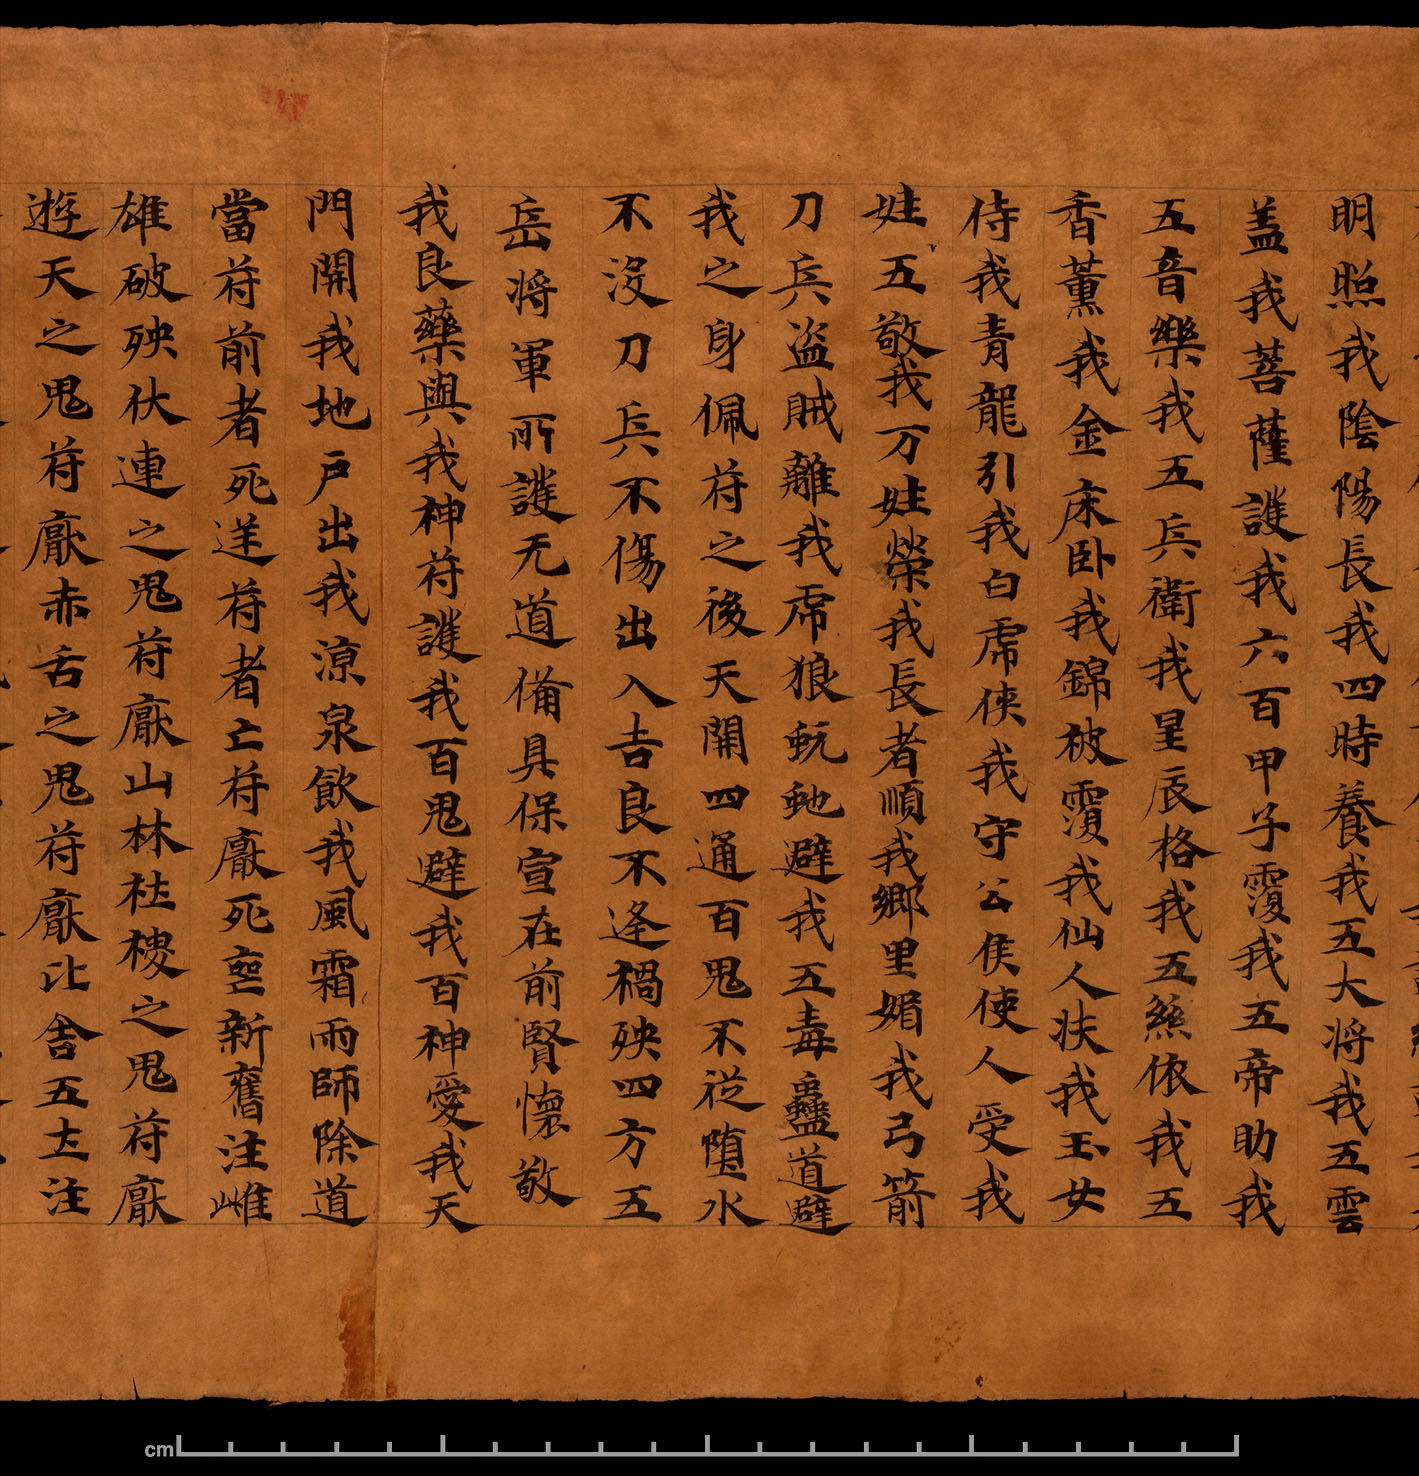 明照我陰陽長我四時養我五大將我五雲
盖我菩薩護我六百甲子覆我五帝助我
五音樂我五兵衛我星辰格我五絲依我五
香薰我金床卧我錦被覆我仙人扶我玉女
侍我青龍引我白虎俠我守公侯使人受我
姓五敬我万姓榮我長者順我鄉里媚我弓箭
刀兵盗賊離我虎狼蚖虵避我五毒蠱道避
我之身佩符之後天開四通百鬼不從墮水
不没刀兵不傷出入吉良不逢禍殃四方五
岳將軍所護无道備具保宣在前賢懷敬
我良藥與我神符護我百鬼避我百神愛我天
門開我地户出我涼泉飲我風霜雨師除道
當符前者死送符者亡符厭死喪新舊注雌
雄破殃伏連之鬼符厭山林社稷之鬼符厭
遊天之鬼符厭赤舌之鬼符厭比舍五土注